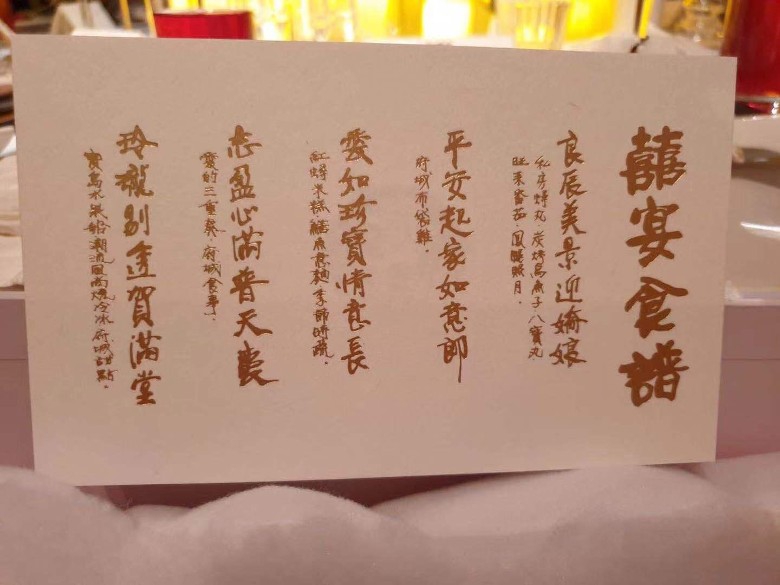 囍宴食譜
良辰美景迎嬌娘
私房蝦丸·炭烤烏魚子·八寶丸·
旺來番茄·鳳眼賊月·
平安起家如意郎
府城布袋雞·
愛如珍寶情意長
紅蟳米糕·鱔魚意麵·季節時蔬·
志盈心滿普天
愛的三重奏·府城食事·
玲瓏別進賀滿堂
寶島水果船·潮流風·冷冰·府城甜點·